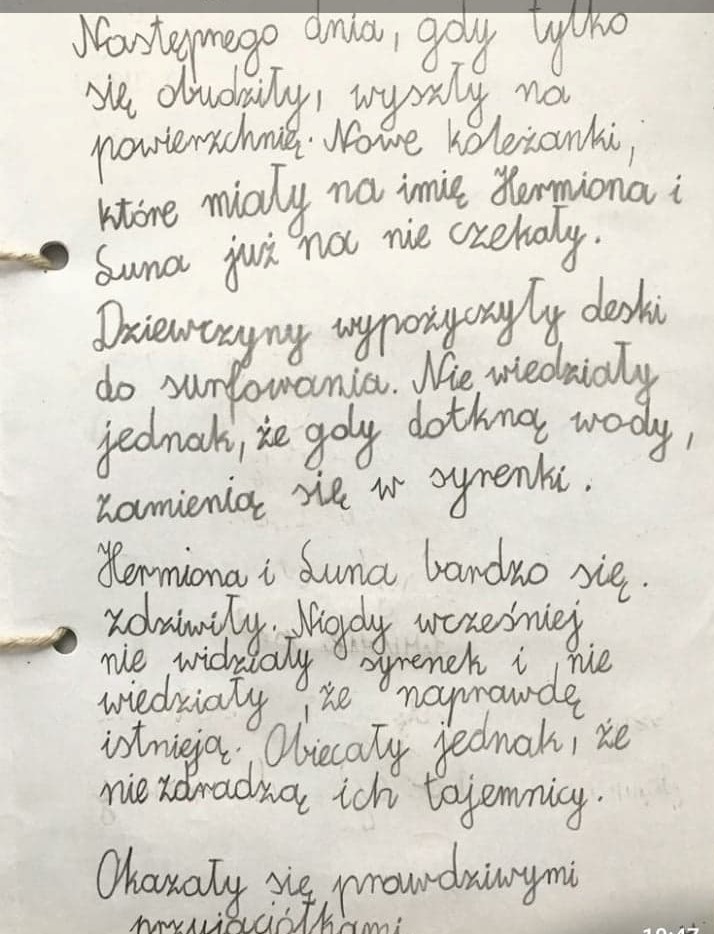 Następnego dnia, gdy tylko
się obudziły, wyszły na
powierzchnię. Nowe koleżanki,
które miały na imię Hermiona i
Luna już na nie czekały.
Dziewczyny wypożyczyły deski
do surfowania. Nie wiedziały
jednak, że gdy dotkną wody,
zamienią się w syrenki.
Hermiona i Luna bardzo się.
zdziwiły. Nigdy wcześniej
nie widziały syrenek i nie
wiedziały, że naprawdę
istnieją. Obiecały jednak, że
nie zdradzą ich tajemnicy.
Okazały się prawdziwymi
przyjaciółkami